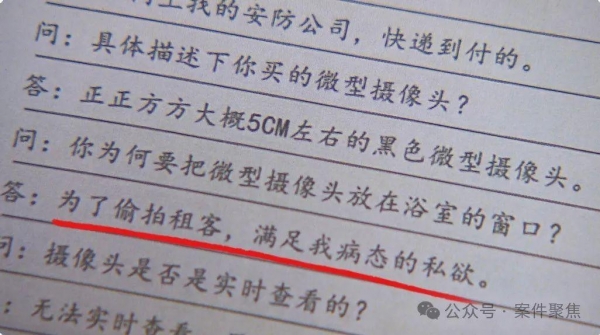 网上找的安防公司，快递到付的。
问：具体描述下你买的微型摄像头？
答：正正方方大概5CM左右的黑色微型摄像头。
问：你为何要把微型摄像头放在浴室的窗口？
答：为了偷拍租客，满足我病态的私欲。
问：摄像头是否是实时查看的？
：无法实时查看
公众号·案件聚焦